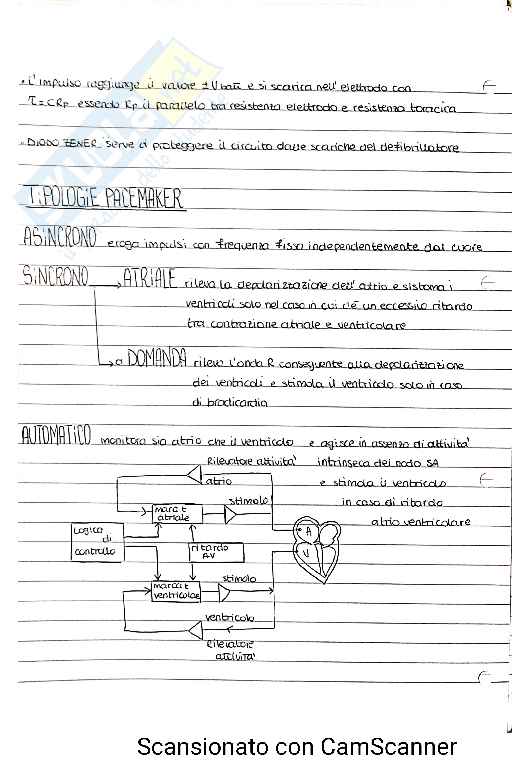 . L'impulso raggiunge il valore ±Vbatt e si scarica nell'elettrodo con
τ=CRp essendo Rp il parallelo tra resistenza elettrodo e resistenza toracica
. DIODO ZENER serve a proteggere il circuito dalle scariche del defibrillatore
TIPOLOGIE PACEMAKER
ASINCRONO eroga impulsi con frequenza fissa independentemente dal cuore
SINCRONO ATRIALE rileva la depolarizzazione dell'atrio e sistoma i
ventricoli solo nel caso in cui c'è un eccessivo ritardo
tra contrazione atriale e ventricolare
a DOMANDA rileva l'onda R conseguente alla depolarizzazione
dei ventricoli e stimola il ventricolo solo in caso
di bradicardia
AUTOMATICO monitora sia atrio che il ventricolo e agisce in assenza di attività
Rilevatore attività intrinseca del nodo SA
atrio e stimola il ventricolo
stimolo in caso di ritardo
atrio ventricolare
marcat
atriale
A
Logica
di
controllo
ritardo
AV
V
marcat
ventricolare
stimolo
ventricolo
Rilevatore
attività
Scansionato con CamScanner